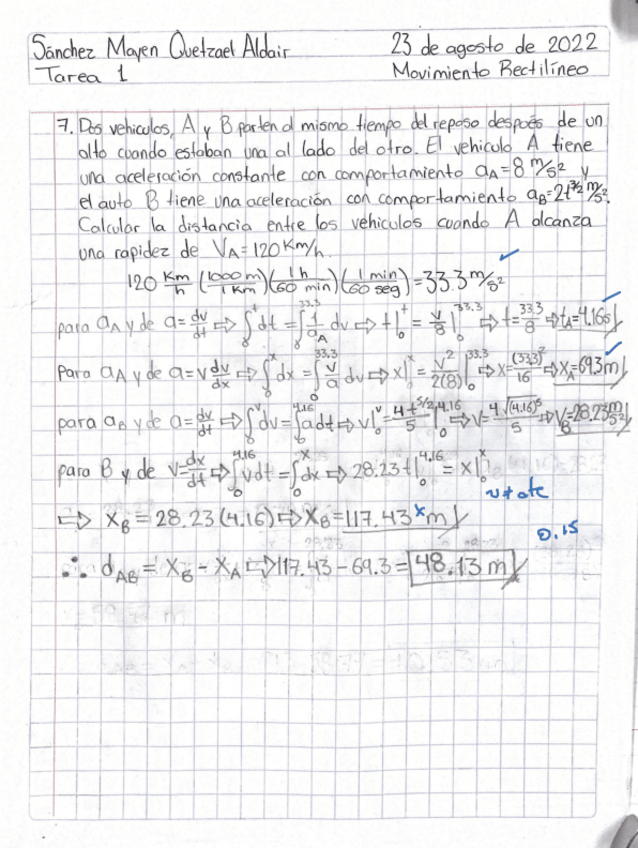 Sánchez Mayen Quetzael Aldair 23 de agosto de 2022
Tarea 1 Movimiento Rectilíneo
7. Dos vehiculos, A y B parten al mismo tiempo del reposo después de un
alto cuando estaban una al lado del otro. El vehiculo A tiene
una aceleración constante con comportamiento a_A=8 m/s² y
el auto B tiene una aceleración con comportamiento a_B=2t^3/2 m/s².
Calcular la distancia entre los vehiculos cuando A alcanza
una rapidez de V_A=120 Km/h.
120 Km/h (1000 m/1 Km)(1 h/60 min)(1 min/60 seg)=33.3 m/s² ✓
para a_A y de a=dv/dt ⇨ ∫₀^t dt = ∫₀^33.3 1/a_A dv ⇨ t|₀^t = v/8|₀^33.3 ⇨ t=33.3/8 ⇨ t_A=4.16s
Para a_A y de a=v dv/dx ⇨ ∫₀^x dx = ∫₀^33.3 v/a dv ⇨ x|₀^x = v²/2(8)|₀^33.3 ⇨ x=(33.3)²/16 ⇨ X_A=69.3m ✓
para a_B y de a=dv/dt ⇨ ∫₀^v dv=∫₀^4.16 a dt ⇨ v|₀^v = 4t^5/2/5|₀^4.16 ⇨ v=4√(4.16)⁵/5 ⇨ V_B=28.23 m/s²
para B y de v=dx/dt ⇨ ∫₀^4.16 v dt = ∫₀^x dx ⇨ 28.23t|₀^4.16 = x|₀^x
v≠cte
⇨ X_B = 28.23(4.16) ⇨ X_B=117.43 m x
0.15
∴ d_AB = X_B - X_A ⇨ 117.43-69.3= 48.13 m